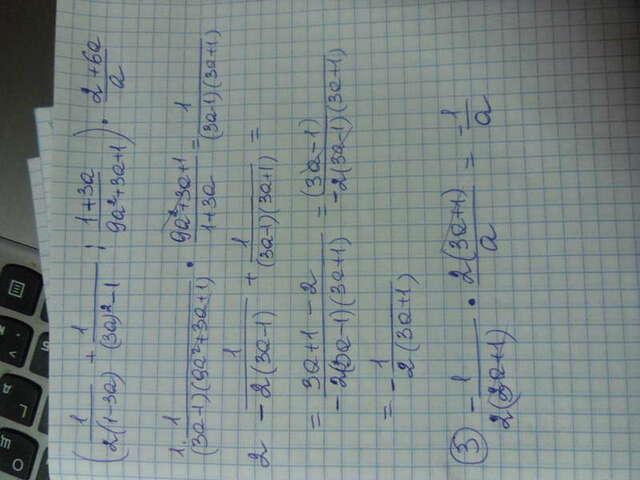 (1/(2(1-3a)) + 1/((3a)²-1) : (1+3a)/(9a²+3a+1)) · (2+6a)/a
1. 1/((3a-1)(9a²+3a+1)) · (9a²+3a+1)/(1+3a) = 1/((3a-1)(3a+1))
2 -1/(2(3a-1)) + 1/((3a-1)(3a+1)) =
= (3a+1-2)/(-2(3a-1)(3a+1)) = (3a-1)/(-2(3a-1)(3a+1))
= -1/(2(3a+1))
③ -1/(2(3a+1)) · 2(3a+1)/a = -1/a